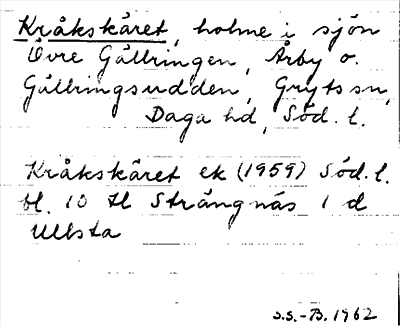 Kråkskäret, holme i sjön
Övre Gällringen, Årby o.
Gällringsudden, Gryts sn,
Daga hd, Söd. l.
Kråkskäret ek (1959) Söd. l.
bl. 10 tl Strängnäs 1 d
Ullsta
S.S.-B. 1962